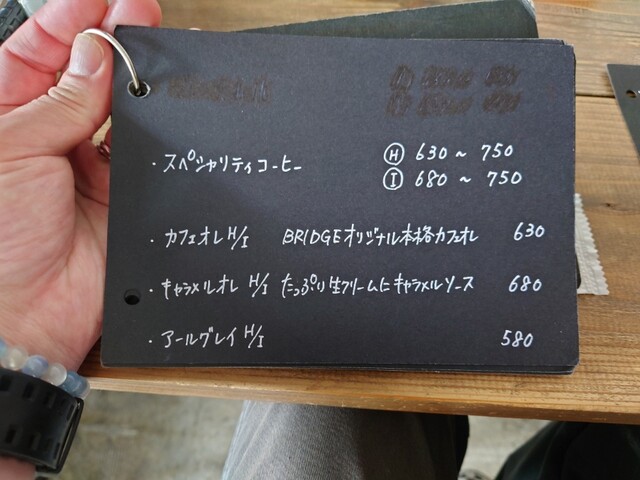 ・スペシャリティコーヒー Ⓗ 630～750
Ⓘ 680～750
・カフェオレ H/I BRIDGEオリジナル本格カフェオレ 630
・キャラメルオレ H/I たっぷり生クリームにキャラメルソース 680
・アールグレイ H/I 580